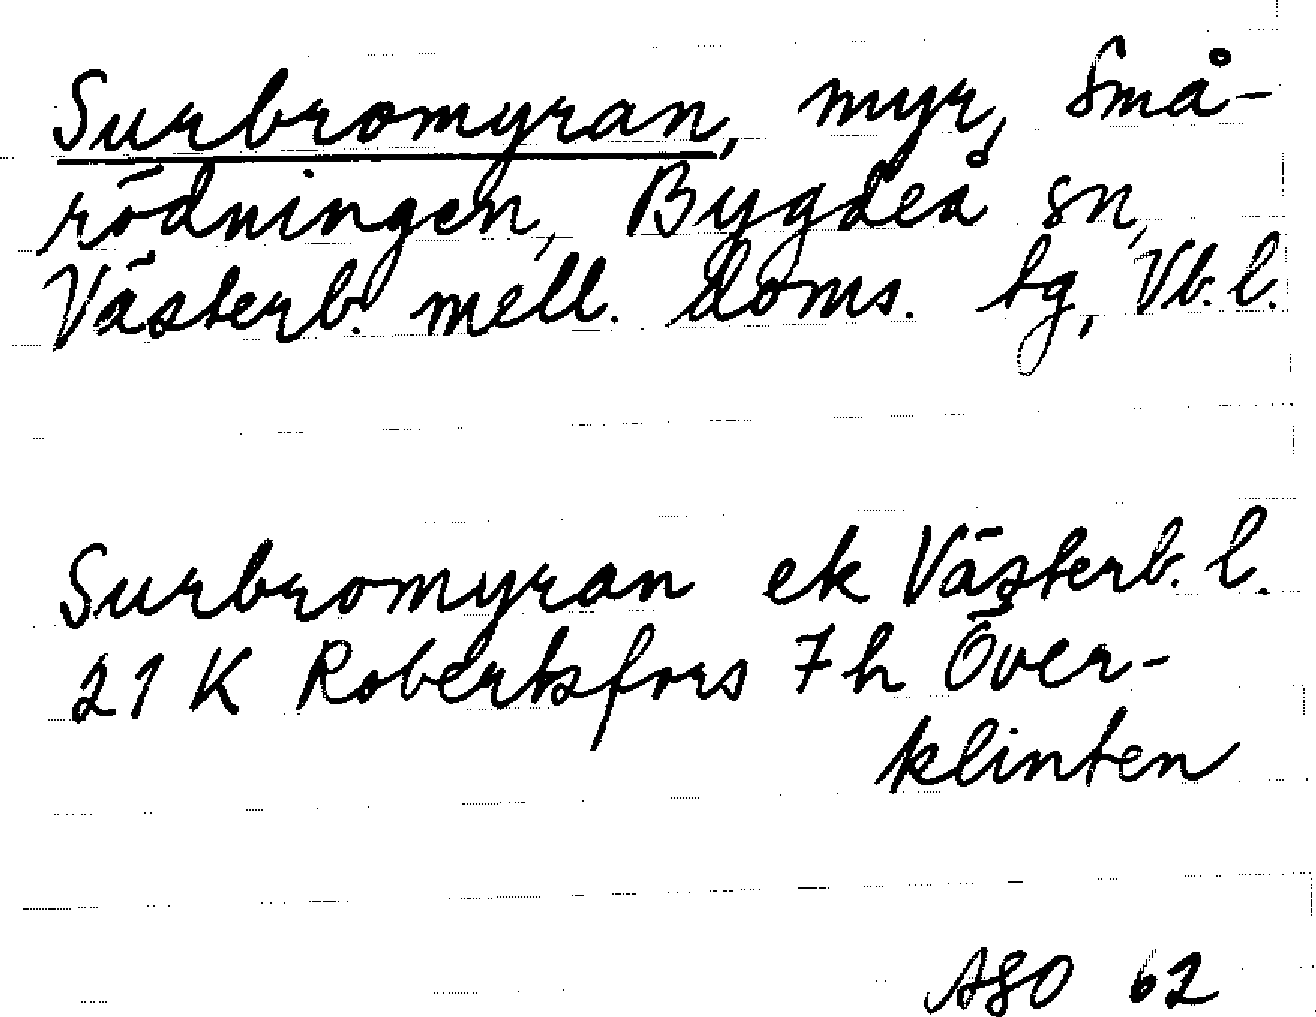 Surbromyran, myr, Små-
rödningen, Bygdeå sn,
Västerb. mell. doms. tg, Vb. l.
Surbromyran ek Västerb. l.
21 K Robertsfors 7h Över-
klinten
62